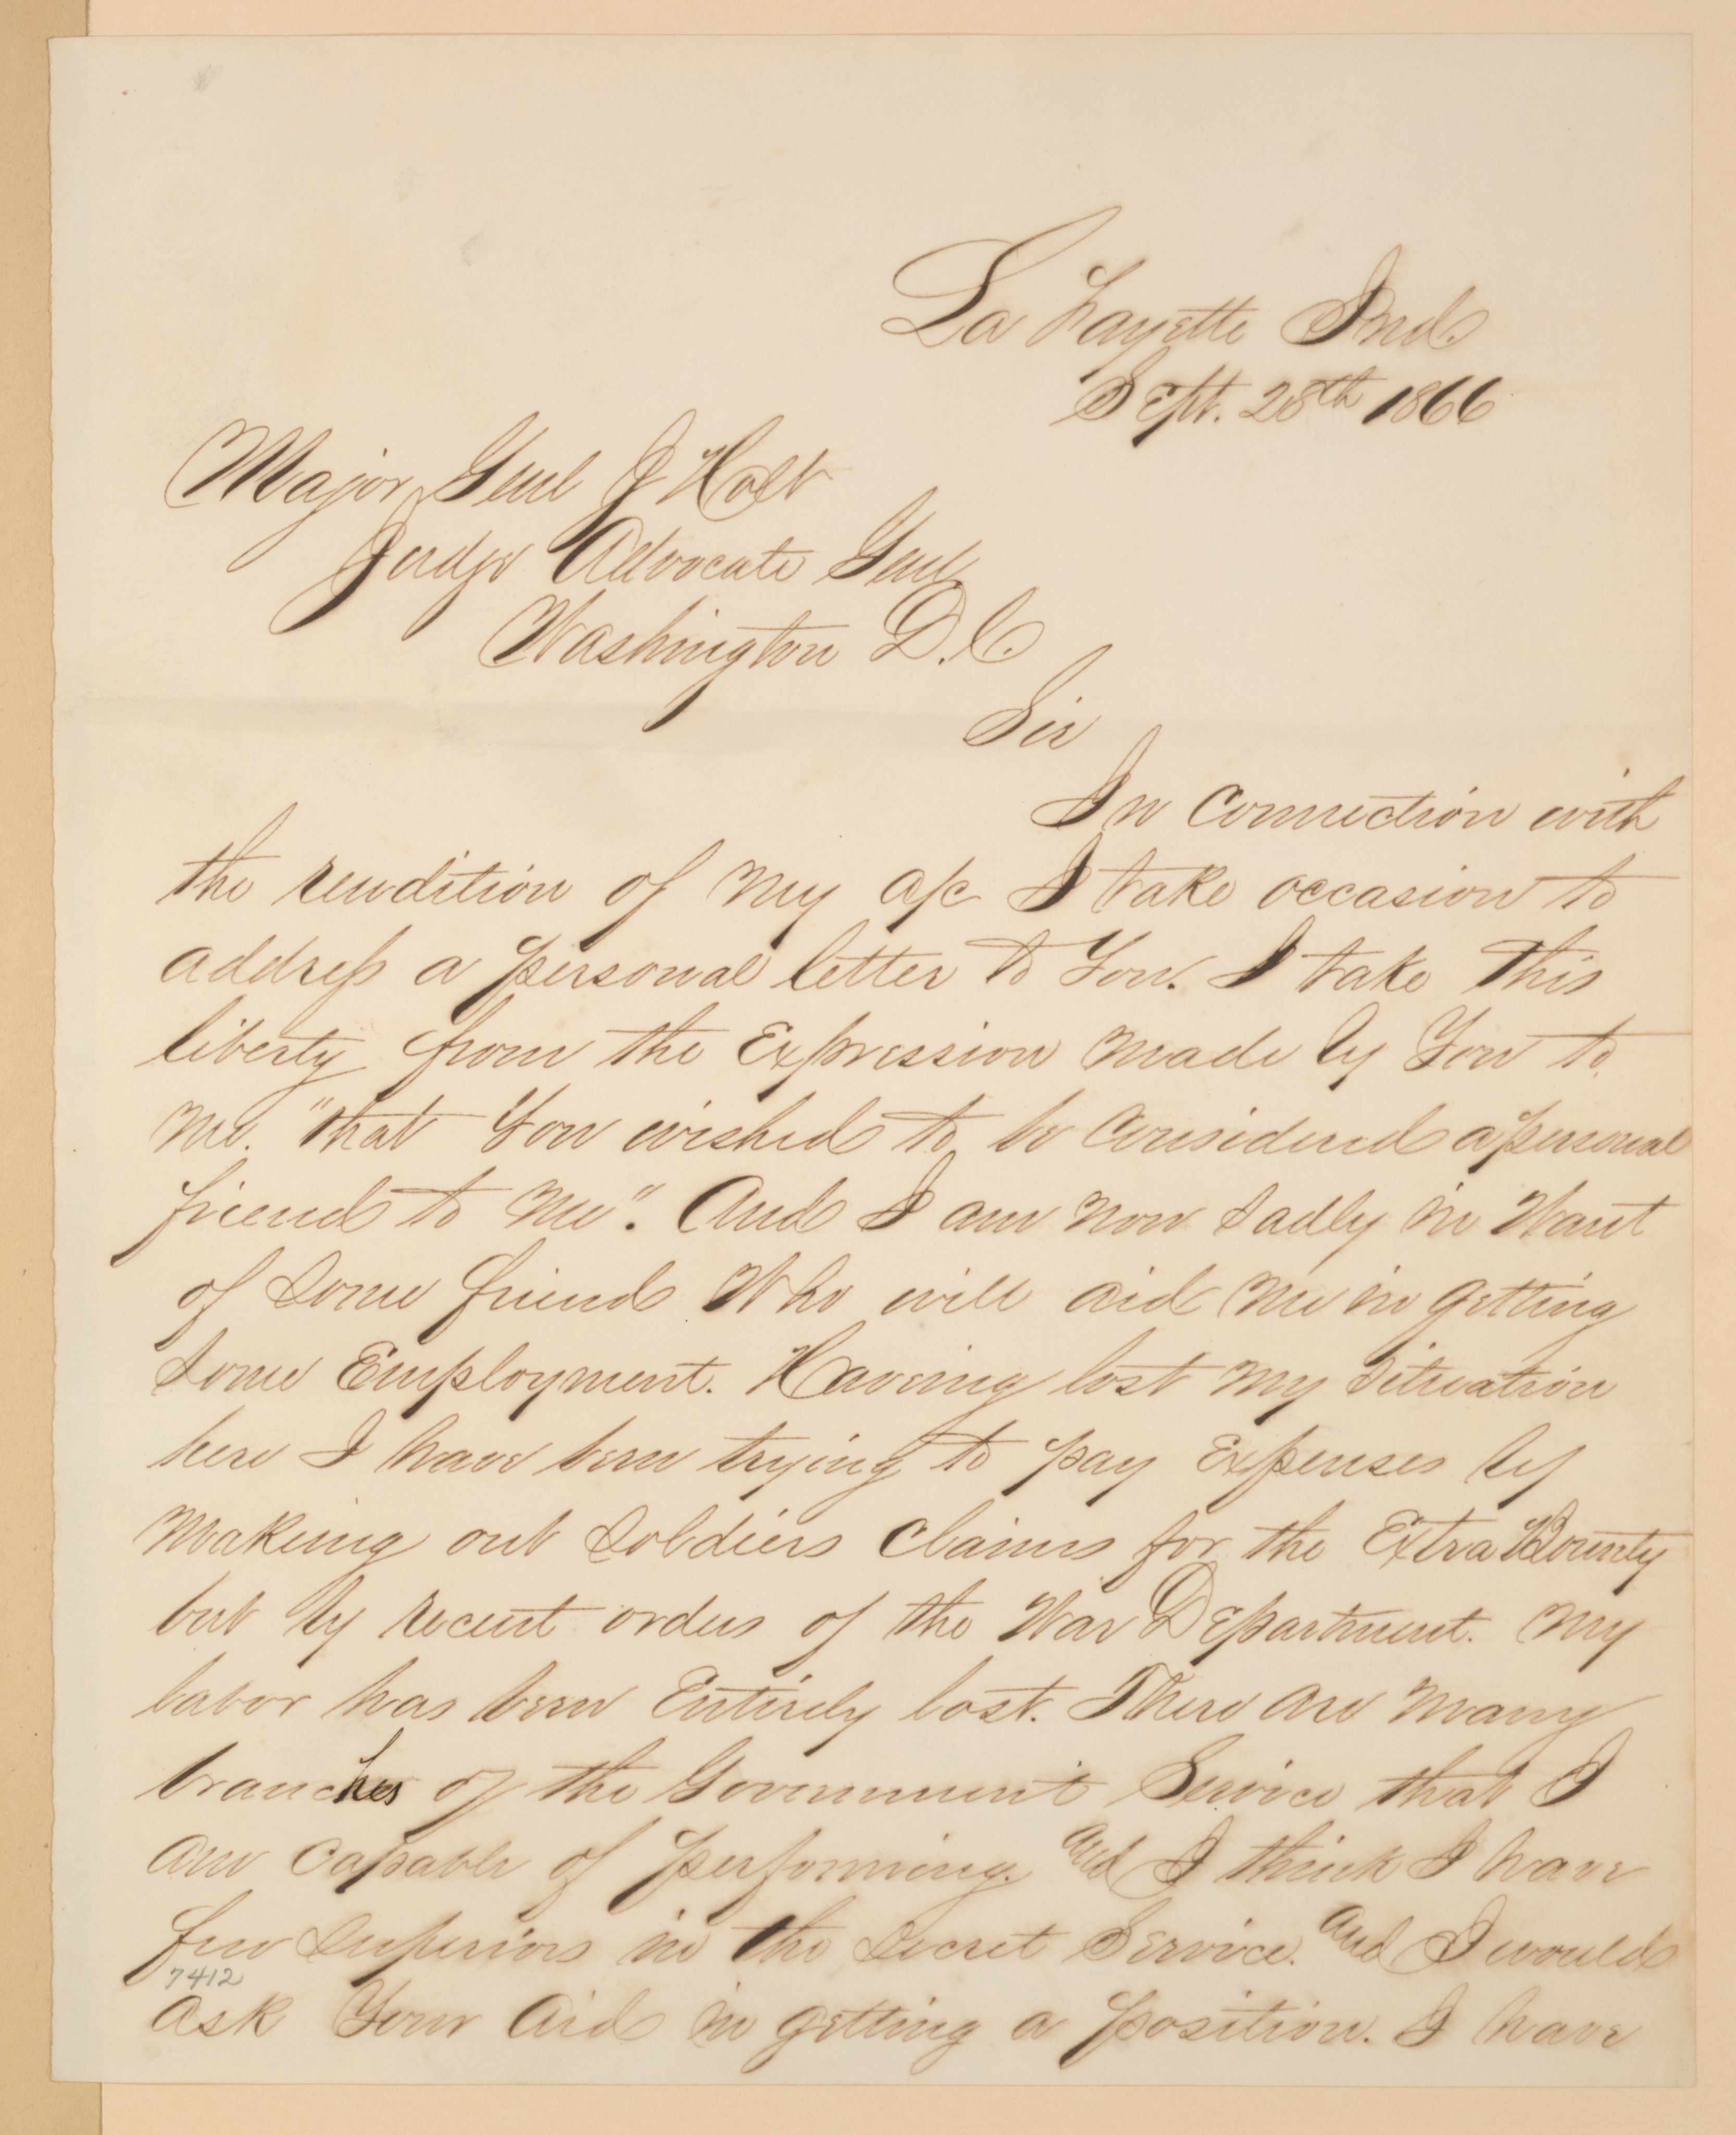 La Fayette Ind.
Sept. 28th 1866
Major Genl J Holt
Judge Advocate Genl
Washington D.C.
Sir
In Connection with
the rendition of my a/c I take occasion to
address a personal letter to You. I take this
liberty from the Expression made by You to
me. "that You wished to be Considered a personal
friend to me". And I am now sadly in Want
of some friend Who will aid me in getting
some Employment. Having lost my situation
here I have been trying to pay Expenses by
Making out soldiers claims for the Extra Bounty
but by recent orders of the War Department. my
labor has been Entirely lost. There are many
branches of the Government Service that I
am capable of performing. and I think I have
few superiors in the secret Service. and I would
7412
ask Your Aid in getting a position. I have